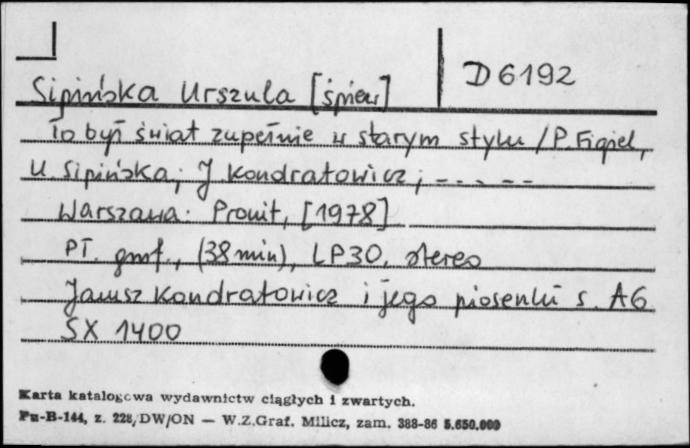 D 6192
Sipińska Urszula [śpiew]
To był świat zupełnie w starym stylu / P. Figiel,
U. Sipińska; J Kondratowicz; - - . - - -
Warszawa: Pronit, [1978]
PT. gmf., (38 min), LP30, stereo
Janusz Kondratowicz i jego piosenki s. A6
SX 1400
Karta katalogowa wydawnictw ciągłych i zwartych.
Pu-B-144, z. 228/DW/ON — W.Z.Graf. Milicz, zam. 388-86 5.650.000